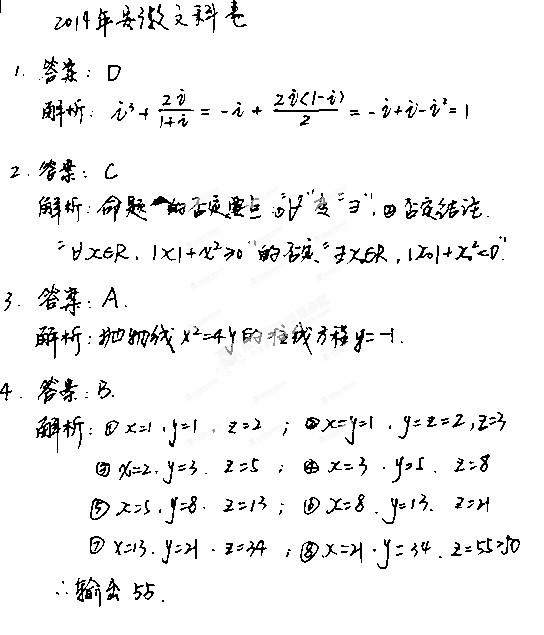 2014年安徽文科卷
1. 答案: D
解析: i³+2i/(1+i)=-i+2i(1-i)/2=-i+i-i²=1
2. 答案: C
解析: 命题的否定要点①"∀"变"∃",②否定结论.
"∀x∈R, |x|+x²≥0"的否定"∃x₀∈R, |x₀|+x₀²<0".
3. 答案: A.
解析: 抛物线x²=4y的准线方程y=-1.
4. 答案: B.
解析: ① x=1, y=1, z=2 ; ② x=y=1, y=z=2, z=3
③ x=2, y=3. z=5 ; ④ x=3. y=5. z=8
⑤ x=5, y=8. z=13 ; ⑥ x=8. y=13. z=21
⑦ x=13. y=21. z=34 ; ⑧ x=21. y=34. z=55>50
∴输出55.